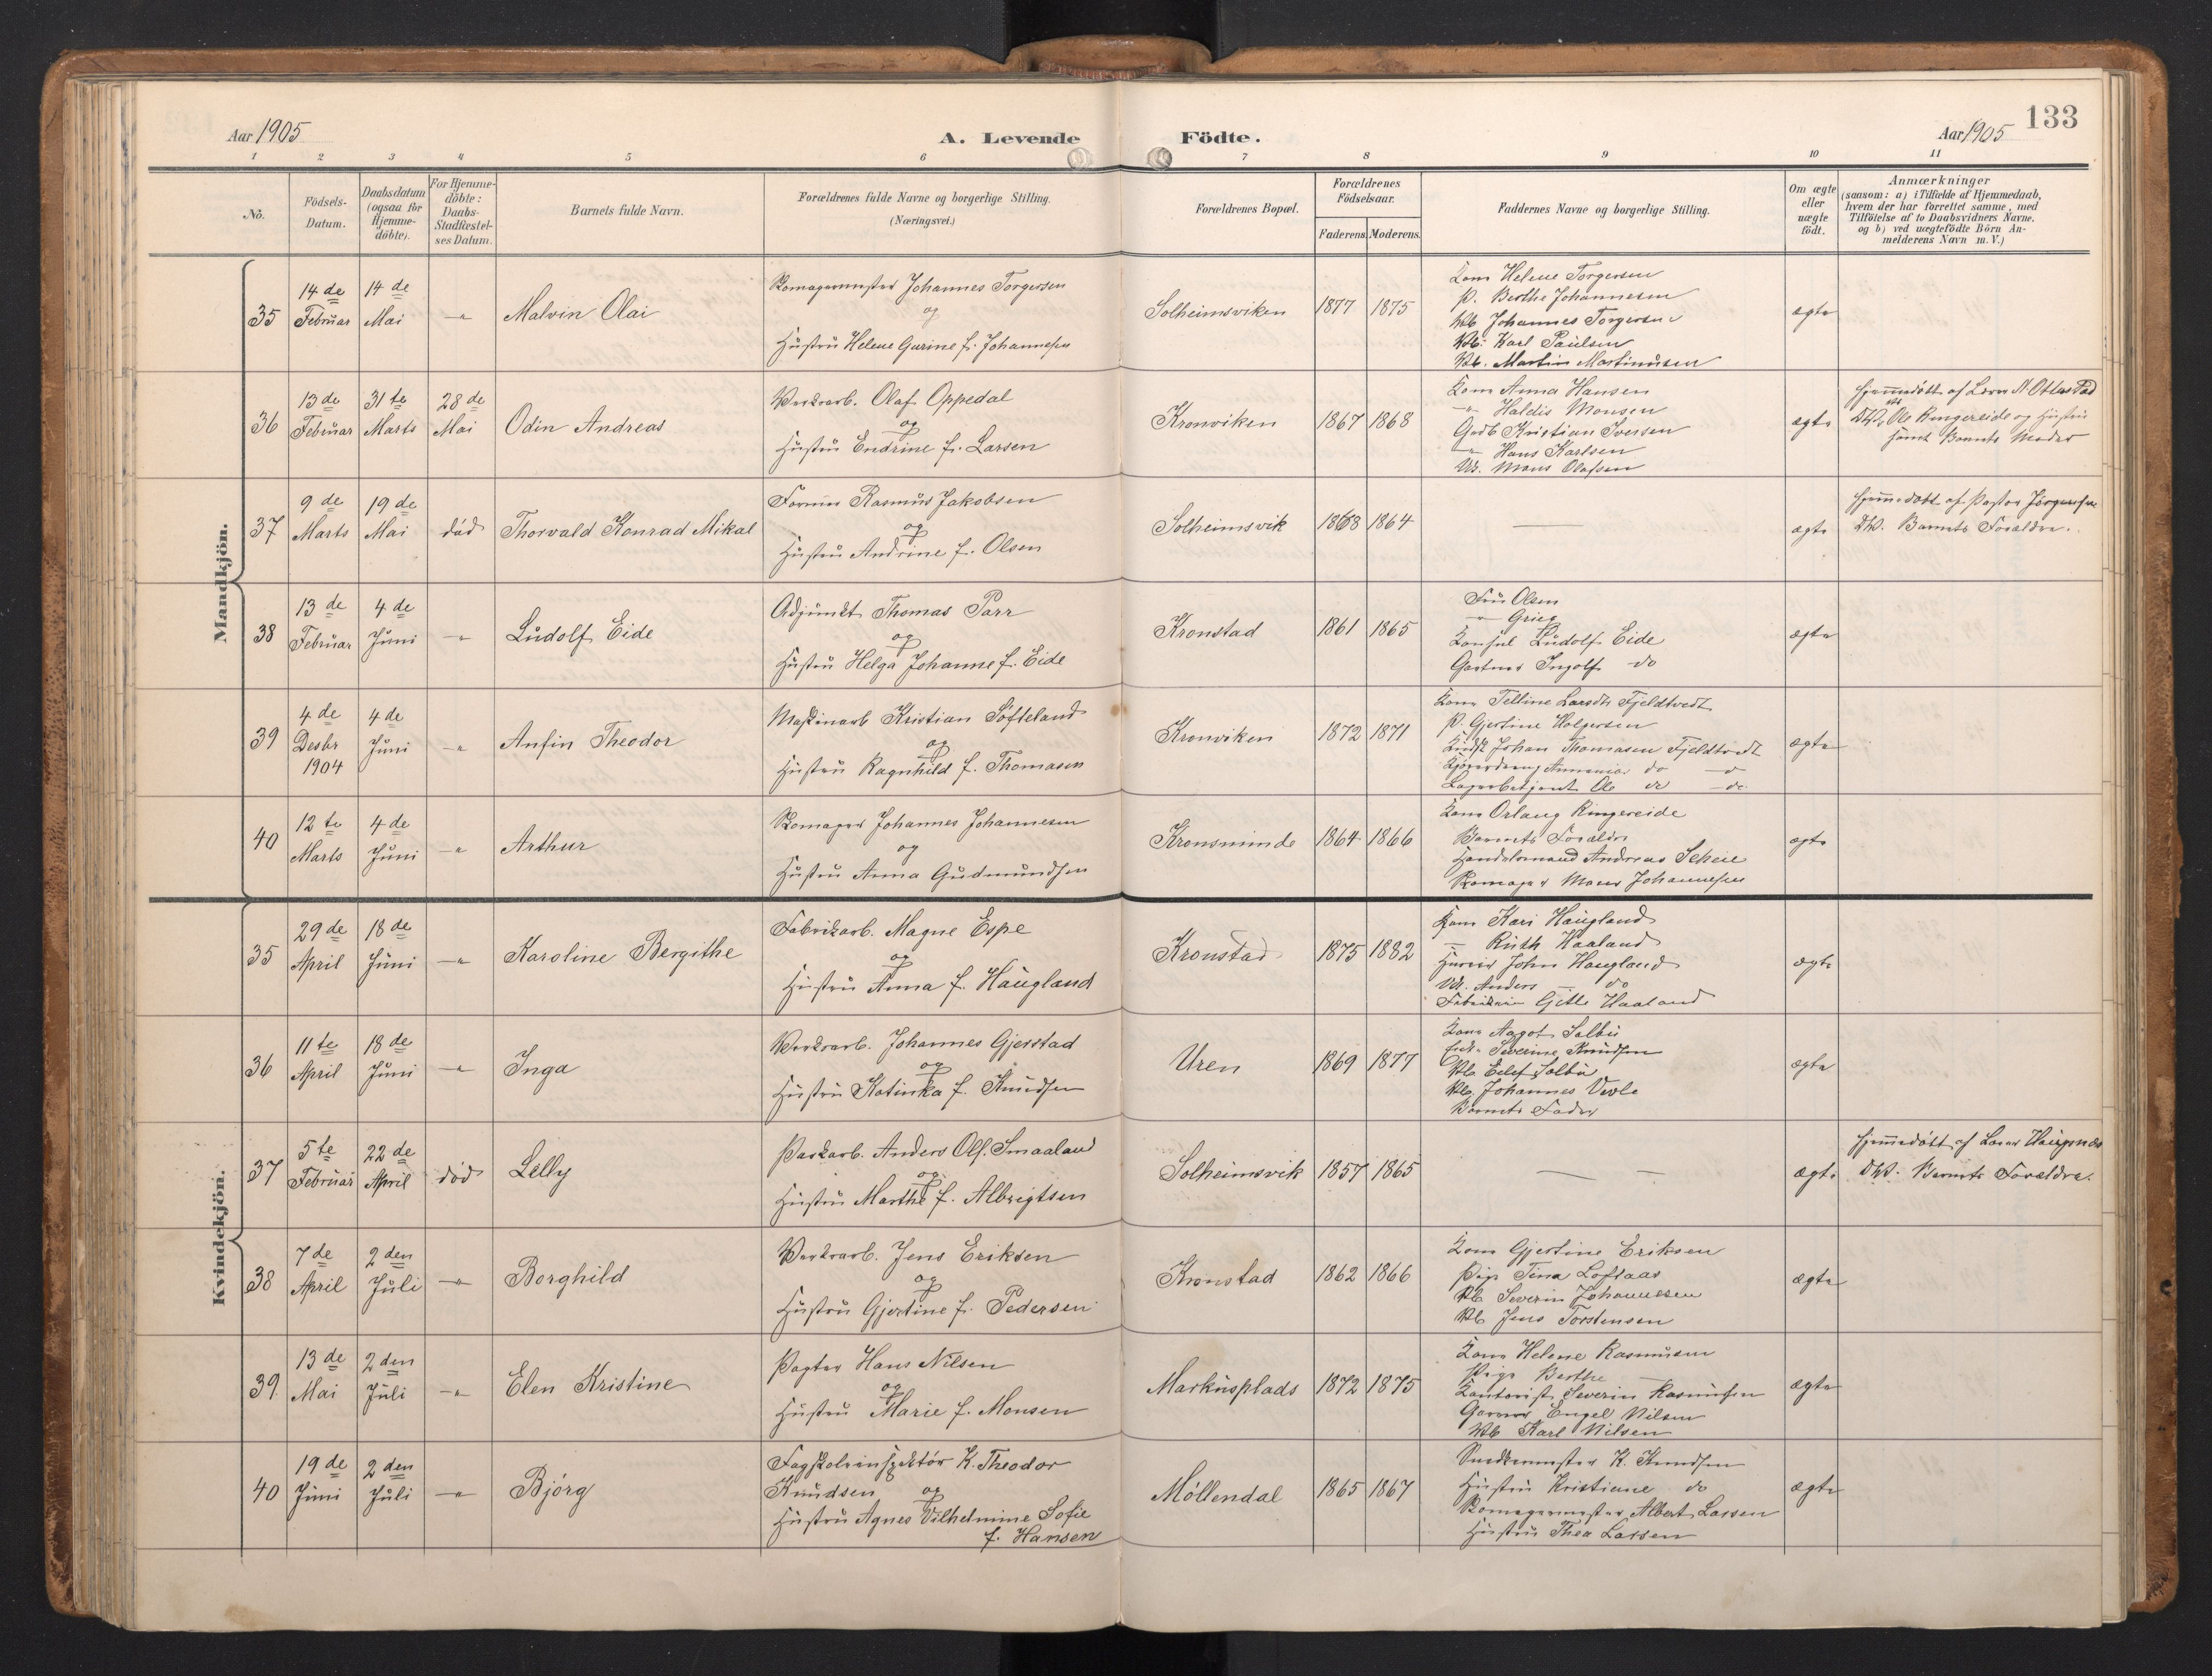 133
Aar 1905
A. Levende Födte.
Aar 1905
1 2 3 4 5 6 7 8 9 10 11
No.
Födsels-
Datum.
Daabsdatum
(ogsaa for
Hjemme-
döbte).
For Hjemme-
döbte:
Daabs-
Stadfæstel-
ses Datum.
Barnets fulde Navn.
Forældrenes fulde Navne og borgerlige Stilling.
(Næringsvei.)
Forældrenes Bopæl.
Forældrenes
Födselsaar.
Faderens. Moderens.
Faddernes Navne og borgerlige Stilling.
Om ægte
eller
uægte
födt.
Anmærkninger
(saasom: a) i Tilfælde af Hjemmedaab,
hvem der har forrettet samme, med
Tilföielse af to Daabsvidners Navne.
og b) ved uægtefödte Börn An-
melderens Navn m. V.)
Mandkjön.
35
14 de
Februar
14 de
Mai
—"—
Malvin Olai
Skomagermester Johannes Torgersen
og
Hustru Helene Gurine f. Johannesen
Solheimsviken
1877
1875
Kone Helene Torgersen
P. Berthe Johannesen
Vkb Johannes Torgersen
Vkb. Karl Paulsen
Vkb. Martin Martinusen
ægte
36
13 de
Februar
31 te
Marts
28 de
Mai
Odin Andreas
Verksarb. Olaf Oppedal
og
Hustru Endrine f. Larsen
Kronviken
1867
1868
Kone Anna Hansen
—"— Haldis Monsen
Gbdb Kristian Iversen
—"— Hans Karlsen
Vk. Mons Olafsen
ægte
Hjemmedöbt af Lærer N. Ottar
DV. Ole Ringereide og Hustru
samt Barnets Moder
37
9 de
Marts
19 de
Mai
död
Thorvald Konrad Mikal
Former Rasmus Jakobsen
og
Hustru Andrine f. Olsen
Solheimsvik
1868
1864
—
ægte
Hjemmedöbt af Pastor Jörgensen
DV. Barnets Forældre.
38
13 de
Februar
4 de
Juni
—"—
Ludolf Eide
Adjunkt Thomas Parr
og
Hustru Helga Johanne f. Eide
Kronstad
1861
1865
Fru Olsen
—"— Grieg
Konsul Ludolf Eide
Gartner Ingolf do
ægte
39
4 de
Desbr
1904
4 de
Juni
—"—
Anfin Theodor
Maskinarb Kristian Söfteland
og
Hustru Ragnhild f. Thomasen
Kronviken
1872
1871
Kone Telline Larsdtr Fjeldtvedt
P. Gjertine Holgersen
Johan Thomasen Fjeldtvedt
Kjöredreng do —o
Lagerbetjent Ole do —do
ægte
40
12 te
Marts
4 de
Juni
—"—
Arthur
Skomager Johannes Johannesen
og
Hustru Anna Gudmundsen
Kronsminde
1864
1866
Kone Orlaug Ringereide
Barnets Forældre
Handelsmand Andreas Scheie
Skomager Mons Johannesen
ægte
Kvindekjön.
35
29 de
April
18 de
Juni
—"—
Karoline Bergithe
Fabrikarb. Magne Espe
og
Hustru Anna f. Haugland
Kronstad
1875
1882
Kone Kari Haugland
—"— Ruth Haaland
John Haugland
Vk. Anders — do
Gitle Haaland
ægte
36
11 te
April
18 de
Juni
—"—
Inga
Verksarb. Johannes Gjerstad
og
Hustru Katinka f. Knudsen
Uren
1869
1877
Kone Aagot Solbu
Severine Knudsen
Vkb Eelef Solbu
Vkb Johannes Veole
Barnets Fader
ægte
37
5 te
Februar
22 de
April
död
Lelly
Parkarb. Anders Olf. Smaaland
og
Hustru Marthe f. Albrigtsen
Solheimsvik
1857
1865
— —
ægte
Hjemmedöbt af Lærer Haugsnæs
DV. Barnets Forældre.
38
7 de
April
2 den
Juli
—"—
Borghild
Verksarb. Jens Eriksen
og
Hustru Gjertine f. Pedersen
Kronstad
1862
1866
Kone Gjertine Eriksen
Pige Tina Loftaas
Vkb Severin Johannesen
Vkb Jens Torstensen
ægte
39.
13 de
Mai
2 den
Juli
—"—
Elen Kristine
Pagter Hans Nilsen
og
Hustru Marie f. Monsen
Markusplads
1872
1875
Kone Helene Rasmusen
Pige Berthe —
Kontorist Severin Rasmusen
Garver Engel Nilsen
Vkb Karl Nilsen
ægte
40
19 de
Juni
2 den
Juli
—"—
Bjórg
Fagskoleinspektör K. Theodor
Knudsen og
Hustru Agnes Vilhelmine Sofie
f. Hansen
Möllendal
1865
1867
Snedkermester K. Knudsen
Hustru Kristiane do
Skomagermester Albert Larsen
Hustru Thea Larsen
ægte